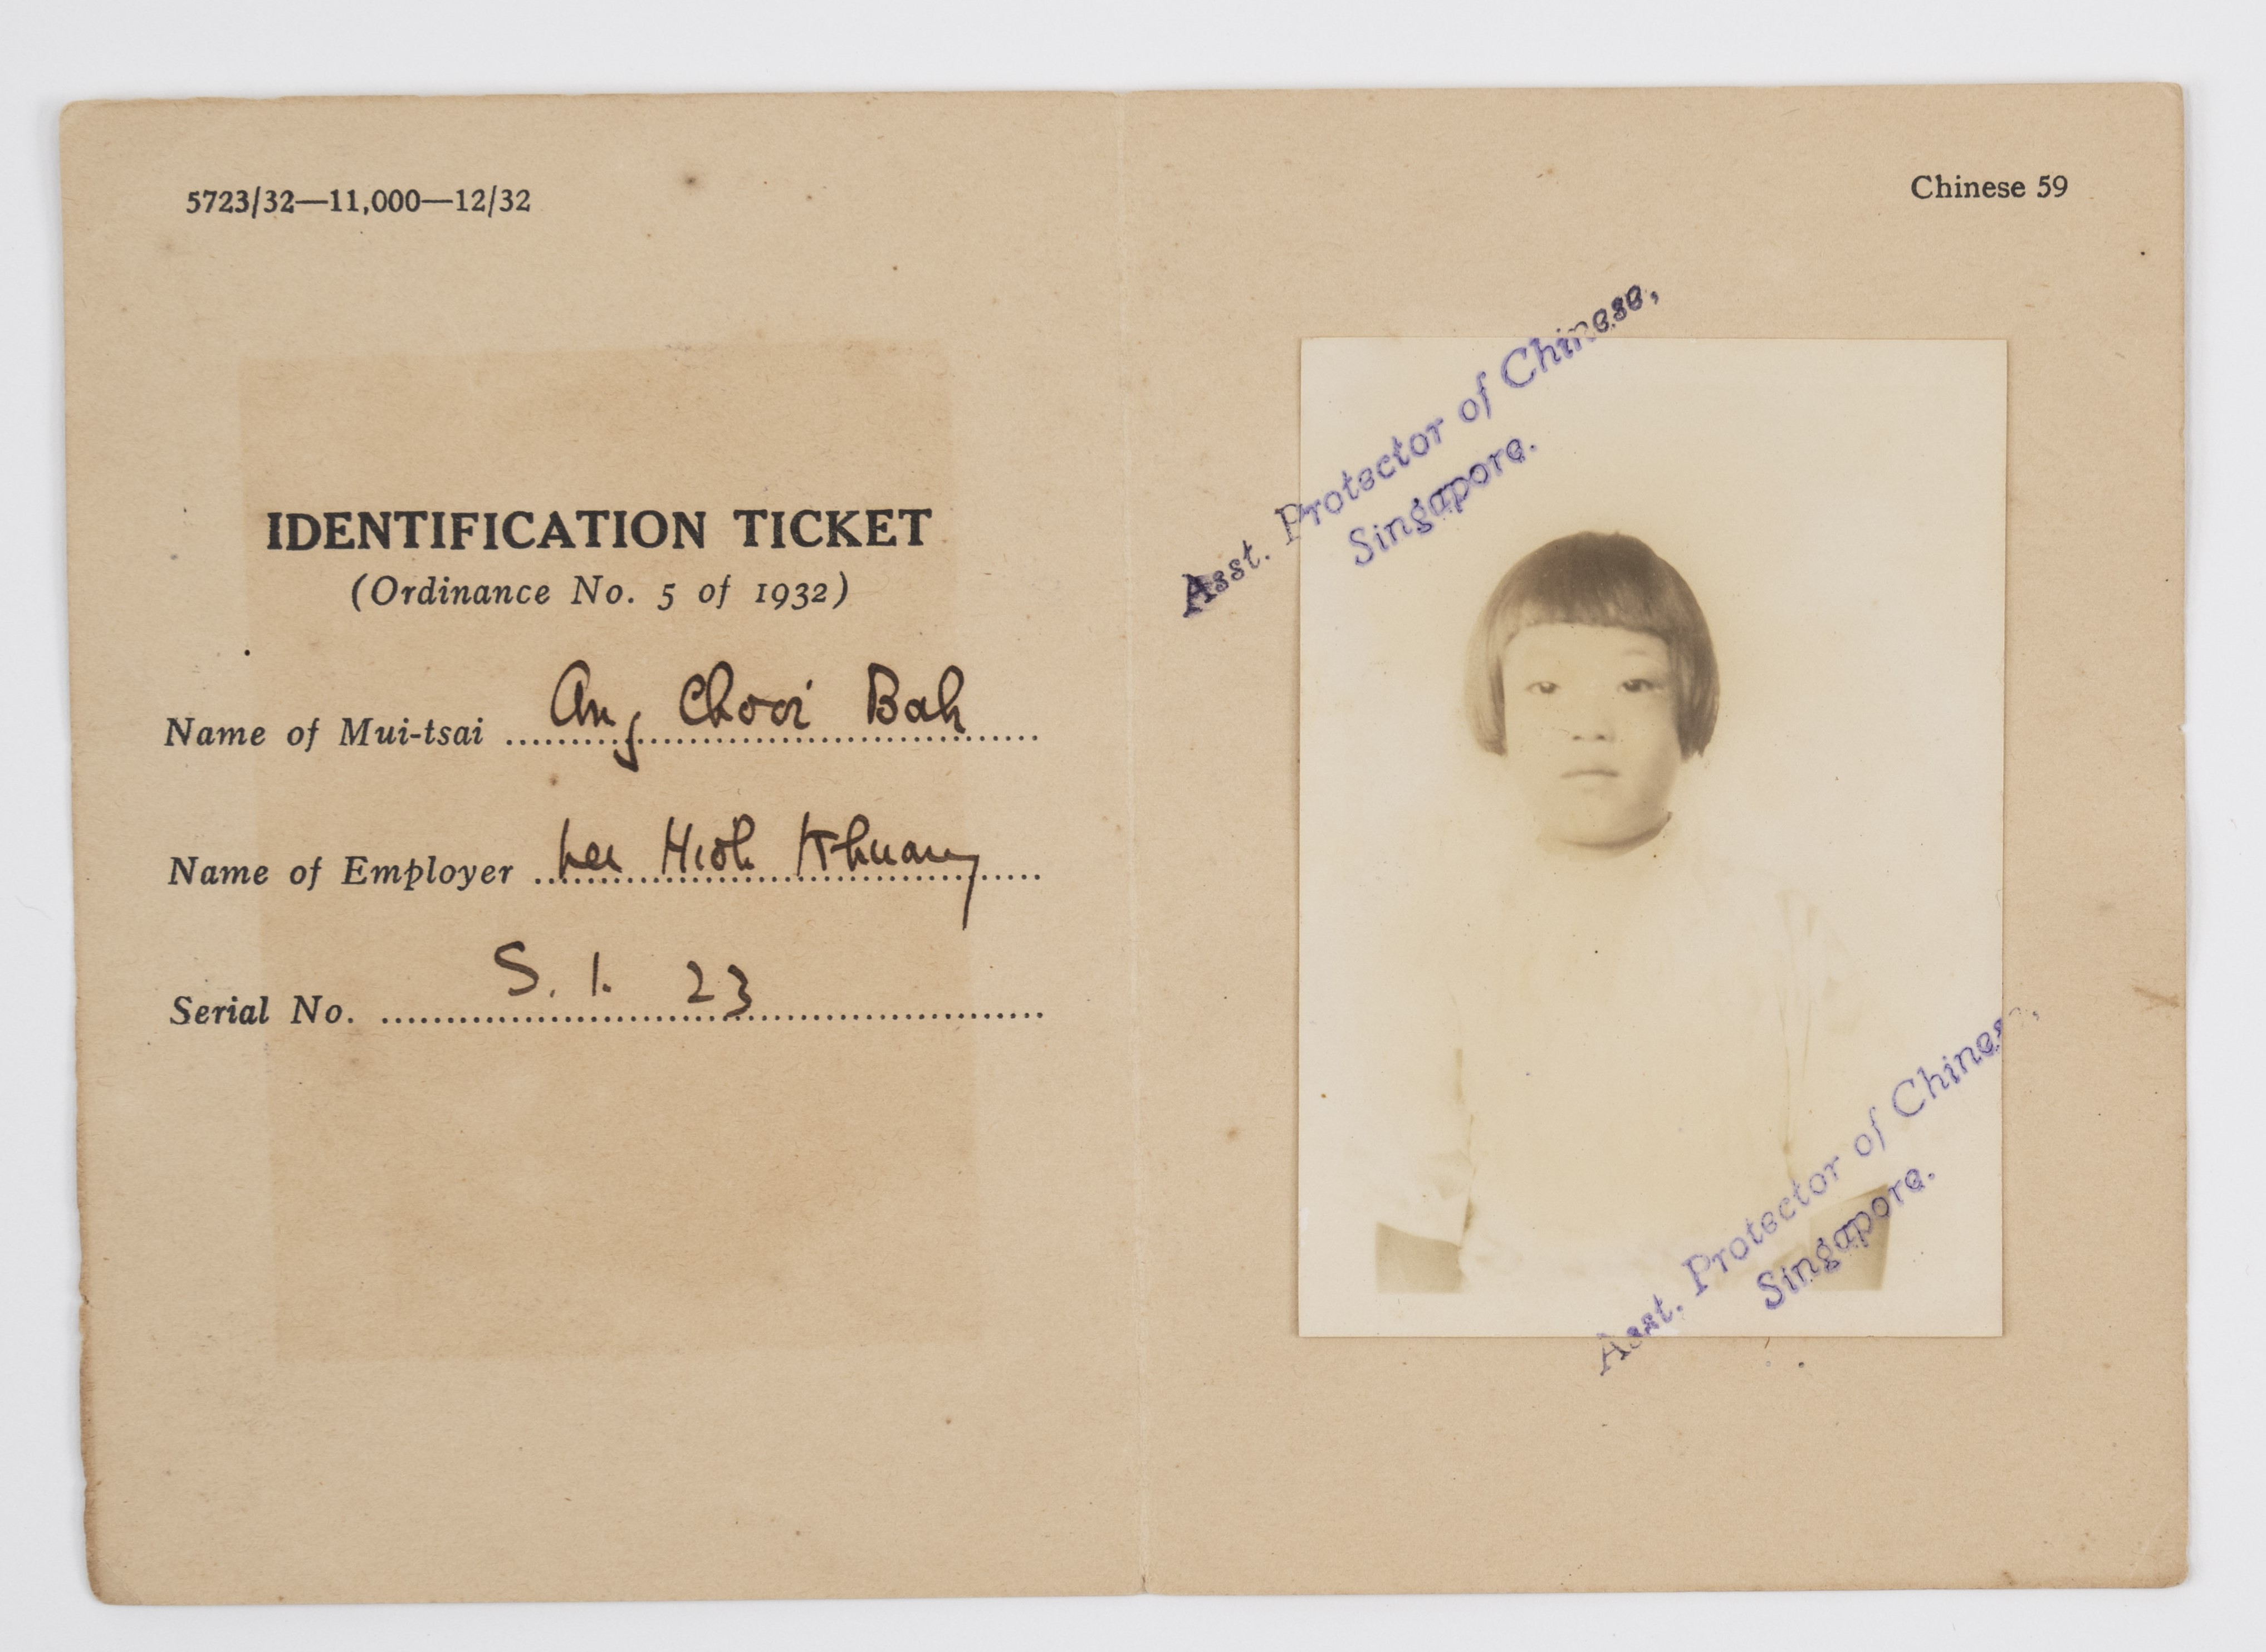 5723/32—11,000—12/32
IDENTIFICATION TICKET
(Ordinance No. 5 of 1932)
Name of Mui-tsai Ang Chooi Bah
Name of Employer Lee Hioh Khuang
Serial No. S. 1. 23
Chinese 59
Asst. Protector of Chinese,
Singapore.
Asst. Protector of Chinese,
Singapore.